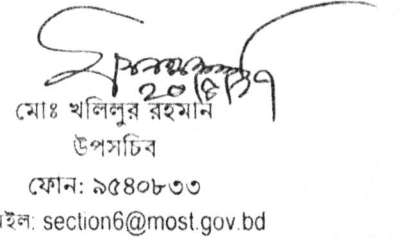 ২০/৫/১৭
মোঃ খলিলুর রহমান
উপসচিব
ফোন: ৯৫৪০৮৩৩
মইল: section6@most.gov.bd